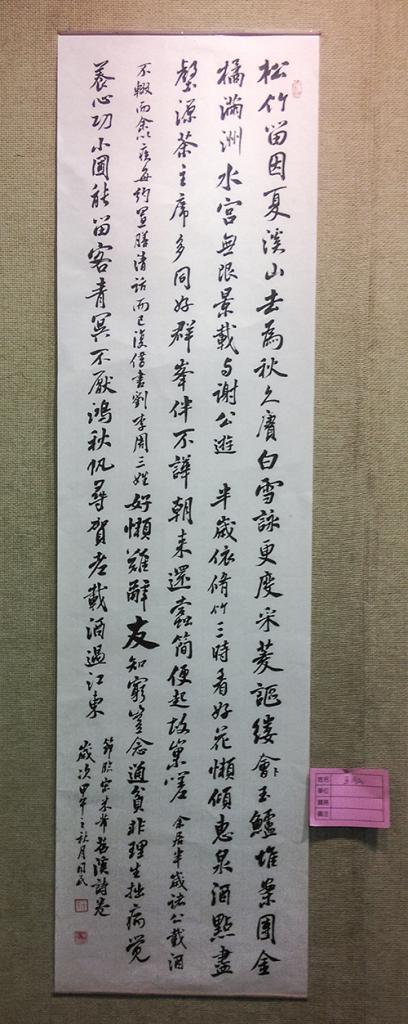 松竹留因夏溪山去為秋久賡白雪詠更度采菱謳縷會玉鱸堆案團金
橘滿洲水宮無限景載與謝公遊 半歲依脩竹三時看好花懶傾惠泉酒點盡
壑源茶主席多同好群峯伴不譁朝來還蠹簡便起故巢嗟 余居半歲諸公載酒
不輟而余以疾每約置膳清話而已復借書劉李周三姓 好懶難辭友知窮豈念通貧非理生拙病覺
養心功小圃能留客青冥不厭鴻秋帆尋賀老載酒過江東
節臨宋米芾苕溪詩卷
歲次甲午之秋月
姓名
單位
職務
備注